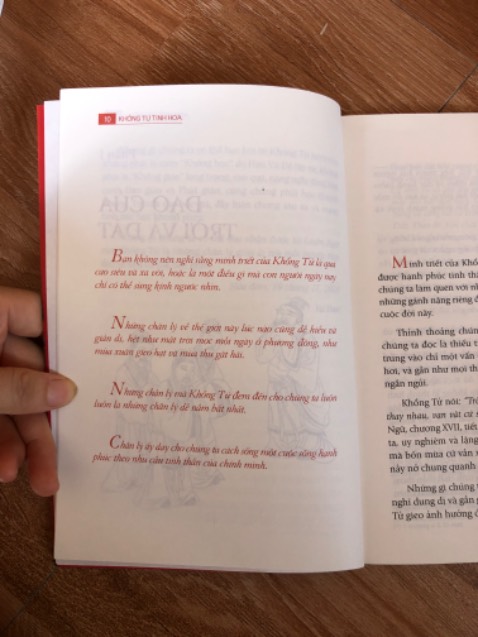 10 KHỔNG TỬ TINH HOA
ĐẠO CỦA
TRỜI VÀ ĐẤT
Bạn không nên nghĩ rằng minh triết của Khổng Tử là quá
cao siêu và xa vời, hoặc là một điều gì mà con người ngày nay
chỉ có thể sùng kính ngước nhìn.
Những chân lý về thế giới này lúc nào cũng dễ hiểu và
giản dị, hệt như mặt trời mọc mỗi ngày ở phương đông, như
mùa xuân gieo hạt và mùa thu gặt hái.
Những chân lý mà Khổng Tử đem đến cho chúng ta luôn
luôn là những chân lý dễ nắm bắt nhất.
Chân lý ấy dạy cho chúng ta cách sống một cuộc sống hạnh
phúc theo nhu cầu tinh thần của chính mình.
Minh triết của Khổ
được hạnh phúc tinh thầ
chúng ta làm quen với nh
những gánh nặng riêng đ
cuộc đời này.
Thỉnh thoảng chúng
chúng ta đọc là thiếu t
trúng vào chỉ một vấn
hơi, và gần như mọi th
ngắn ngủi.
Khổng Tử nói: "Trờ
thay nhau, vạn vật cứ s
Ngữ, chương XVII, tiết
ta, uy nghiêm và lặng
mà bốn mùa cứ vần
này nở chung quanh
Những gì chúng
nghi dung dị và gần
Tử gieo ảnh hưởng